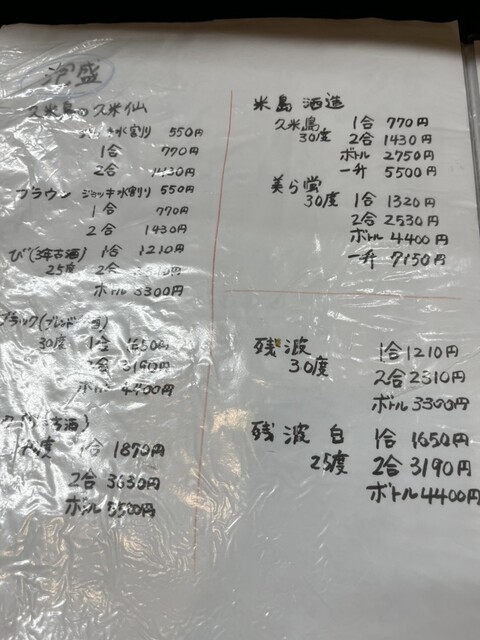 泡盛
久米島の久米仙
水割り 550円
1合 770円
2合 1430円
ブラウン ジョッキ水割り 550円
1合 770円
2合 1430円
び(3年古酒) 1合 1210円
25度 2合
ボトル 3300円
ブラック(ブレンド 酒)
30度 1合 1650円
2合 3190円
ボトル 4400円
古酒)
度 1合 1870円
2合 3630円
ボトル 5500円
米島酒造
久米島 1合 770円
30度 2合 1430円
ボトル 2750円
一升 5500円
美ら蛍 1合 1320円
30度 2合 2530円
ボトル 4400円
一升 7150円
残波 1合 1210円
30度 2合 2310円
ボトル 3300円
残波 白 1合 1650円
25度 2合 3190円
ボトル 4400円